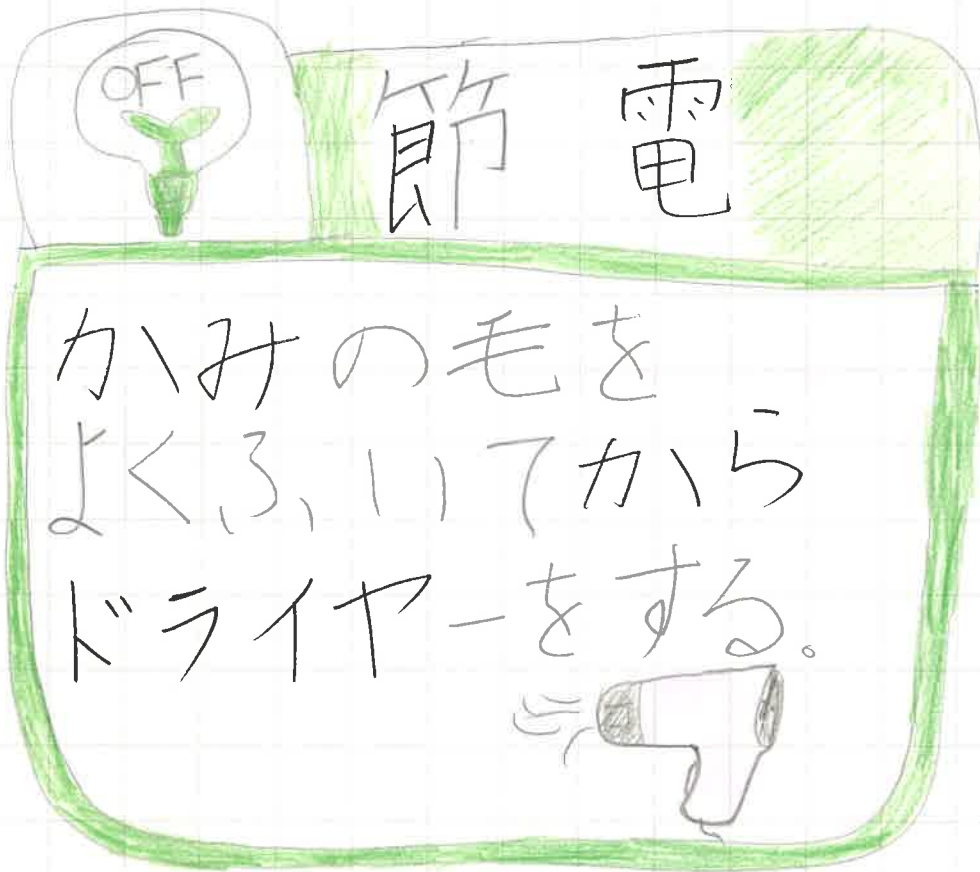 OFF
節電
かみの毛を
よくふいてから
ドライヤーをする。